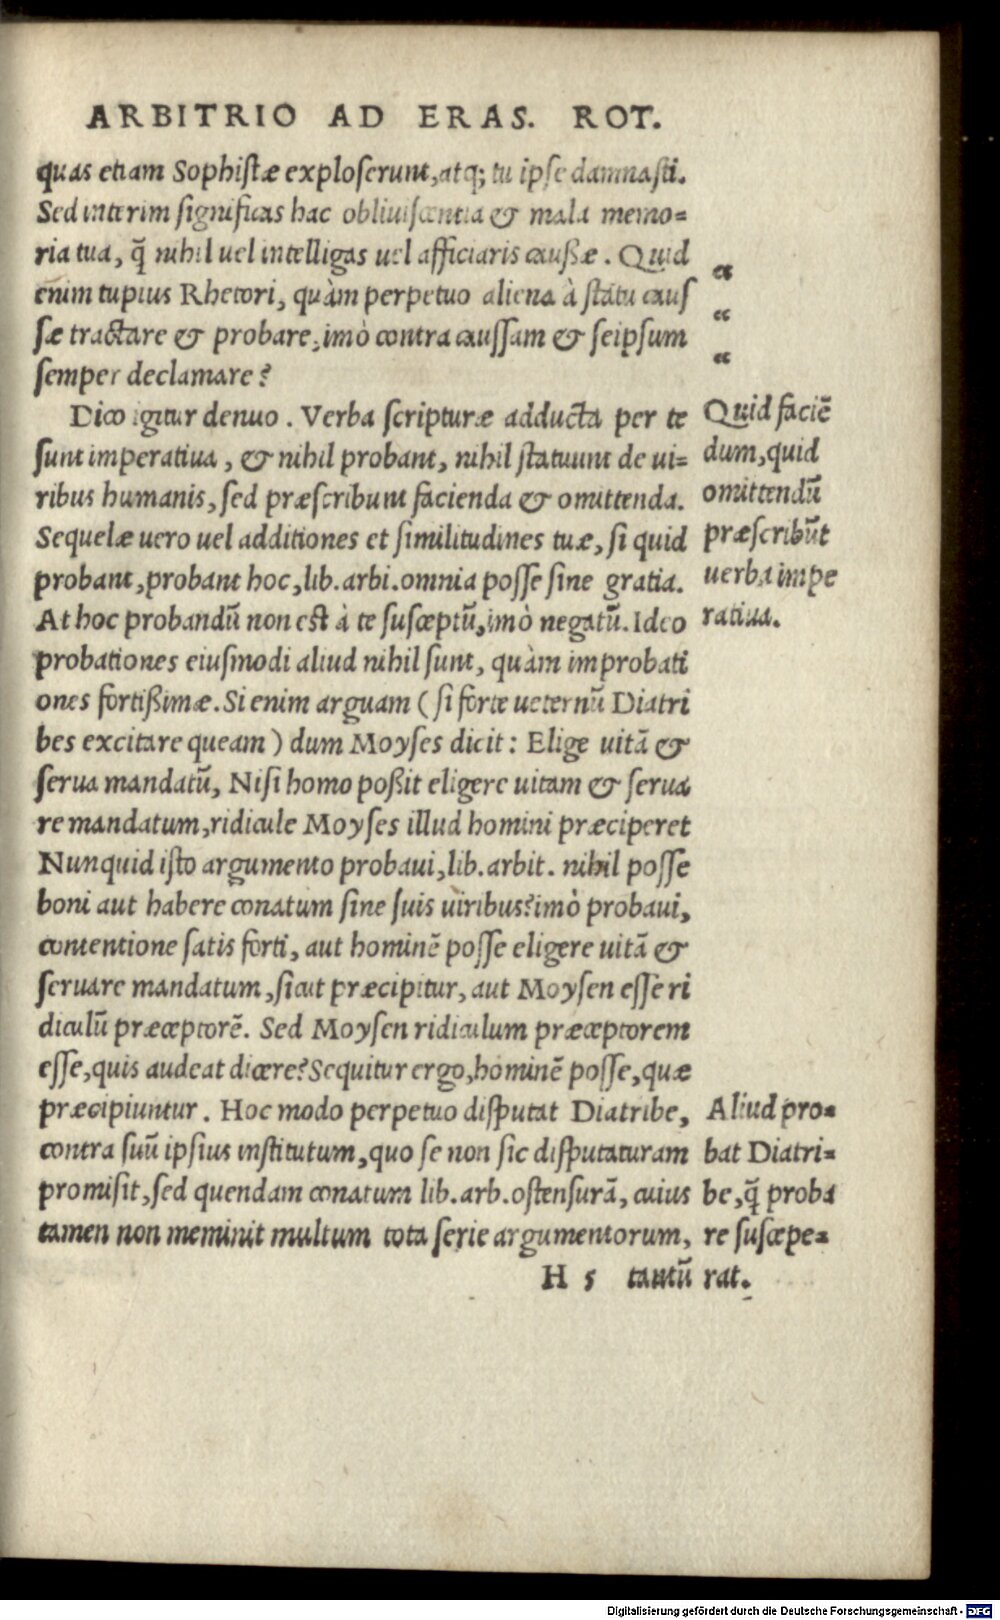 ARBITRIO AD ERAS. ROT.
quas etiam Sophistæ exploserunt, atq; tu ipse damnasti.
Sed interim significas hac obliuiscentia & mala memo=
ria tua, q̃ nihil uel intelligas uel afficiaris caussæ. Quid
enim turpius Rhetori, quàm perpetuo aliena à statu caus
sæ tractare & probare, imò contra caussam & seipsum
semper declamare?
Dico igitur denuo. Verba scripturæ adducta per te
sunt imperatiua, & nihil probant, nihil statuunt de ui=
ribus humanis, sed præscribunt facienda & omittenda.
Sequelæ uero uel additiones et similitudines tuæ, si quid
probant, probant hoc, lib. arbi. omnia posse sine gratia.
At hoc probandũ non est à te susceptũ, imò negatũ. Ideo
probationes eiusmodi aliud nihil sunt, quàm improbati
ones fortissimæ. Si enim arguam (si forte ueternũ Diatri
bes excitare queam) dum Moyses dicit: Elige uitã &
serua mandatũ, Nisi homo possit eligere uitam & serua
re mandatum, ridicule Moyses illud homini præciperet
Nunquid isto argumento probaui, lib. arbit. nihil posse
boni aut habere conatum sine suis uiribus? imò probaui,
contentione satis forti, aut hominẽ posse eligere uitã &
seruare mandatum, sicut præcipitur, aut Moysen esse ri
diculũ præceptorẽ. Sed Moysen ridiculum præceptorem
esse, quis audeat dicere? Sequitur ergo, hominẽ posse, quæ
præcipiuntur. Hoc modo perpetuo disputat Diatribe,
contra suũ ipsius institutum, quo se non sic disputaturam
promisit, sed quendam conatum lib. arb. ostensurã, cuius
tamen non meminit multum tota serie argumentorum,
H 5 tantũ
“
“
“
Quid faciẽ
dum, quid
omittendũ
præscribũt
uerba impe
ratiua.
Aliud pro=
bat Diatri=
be, q̃ proba
re suscepe=
rat.
Digitalisierung gefördert durch die Deutsche Forschungsgemeinschaft - DFG